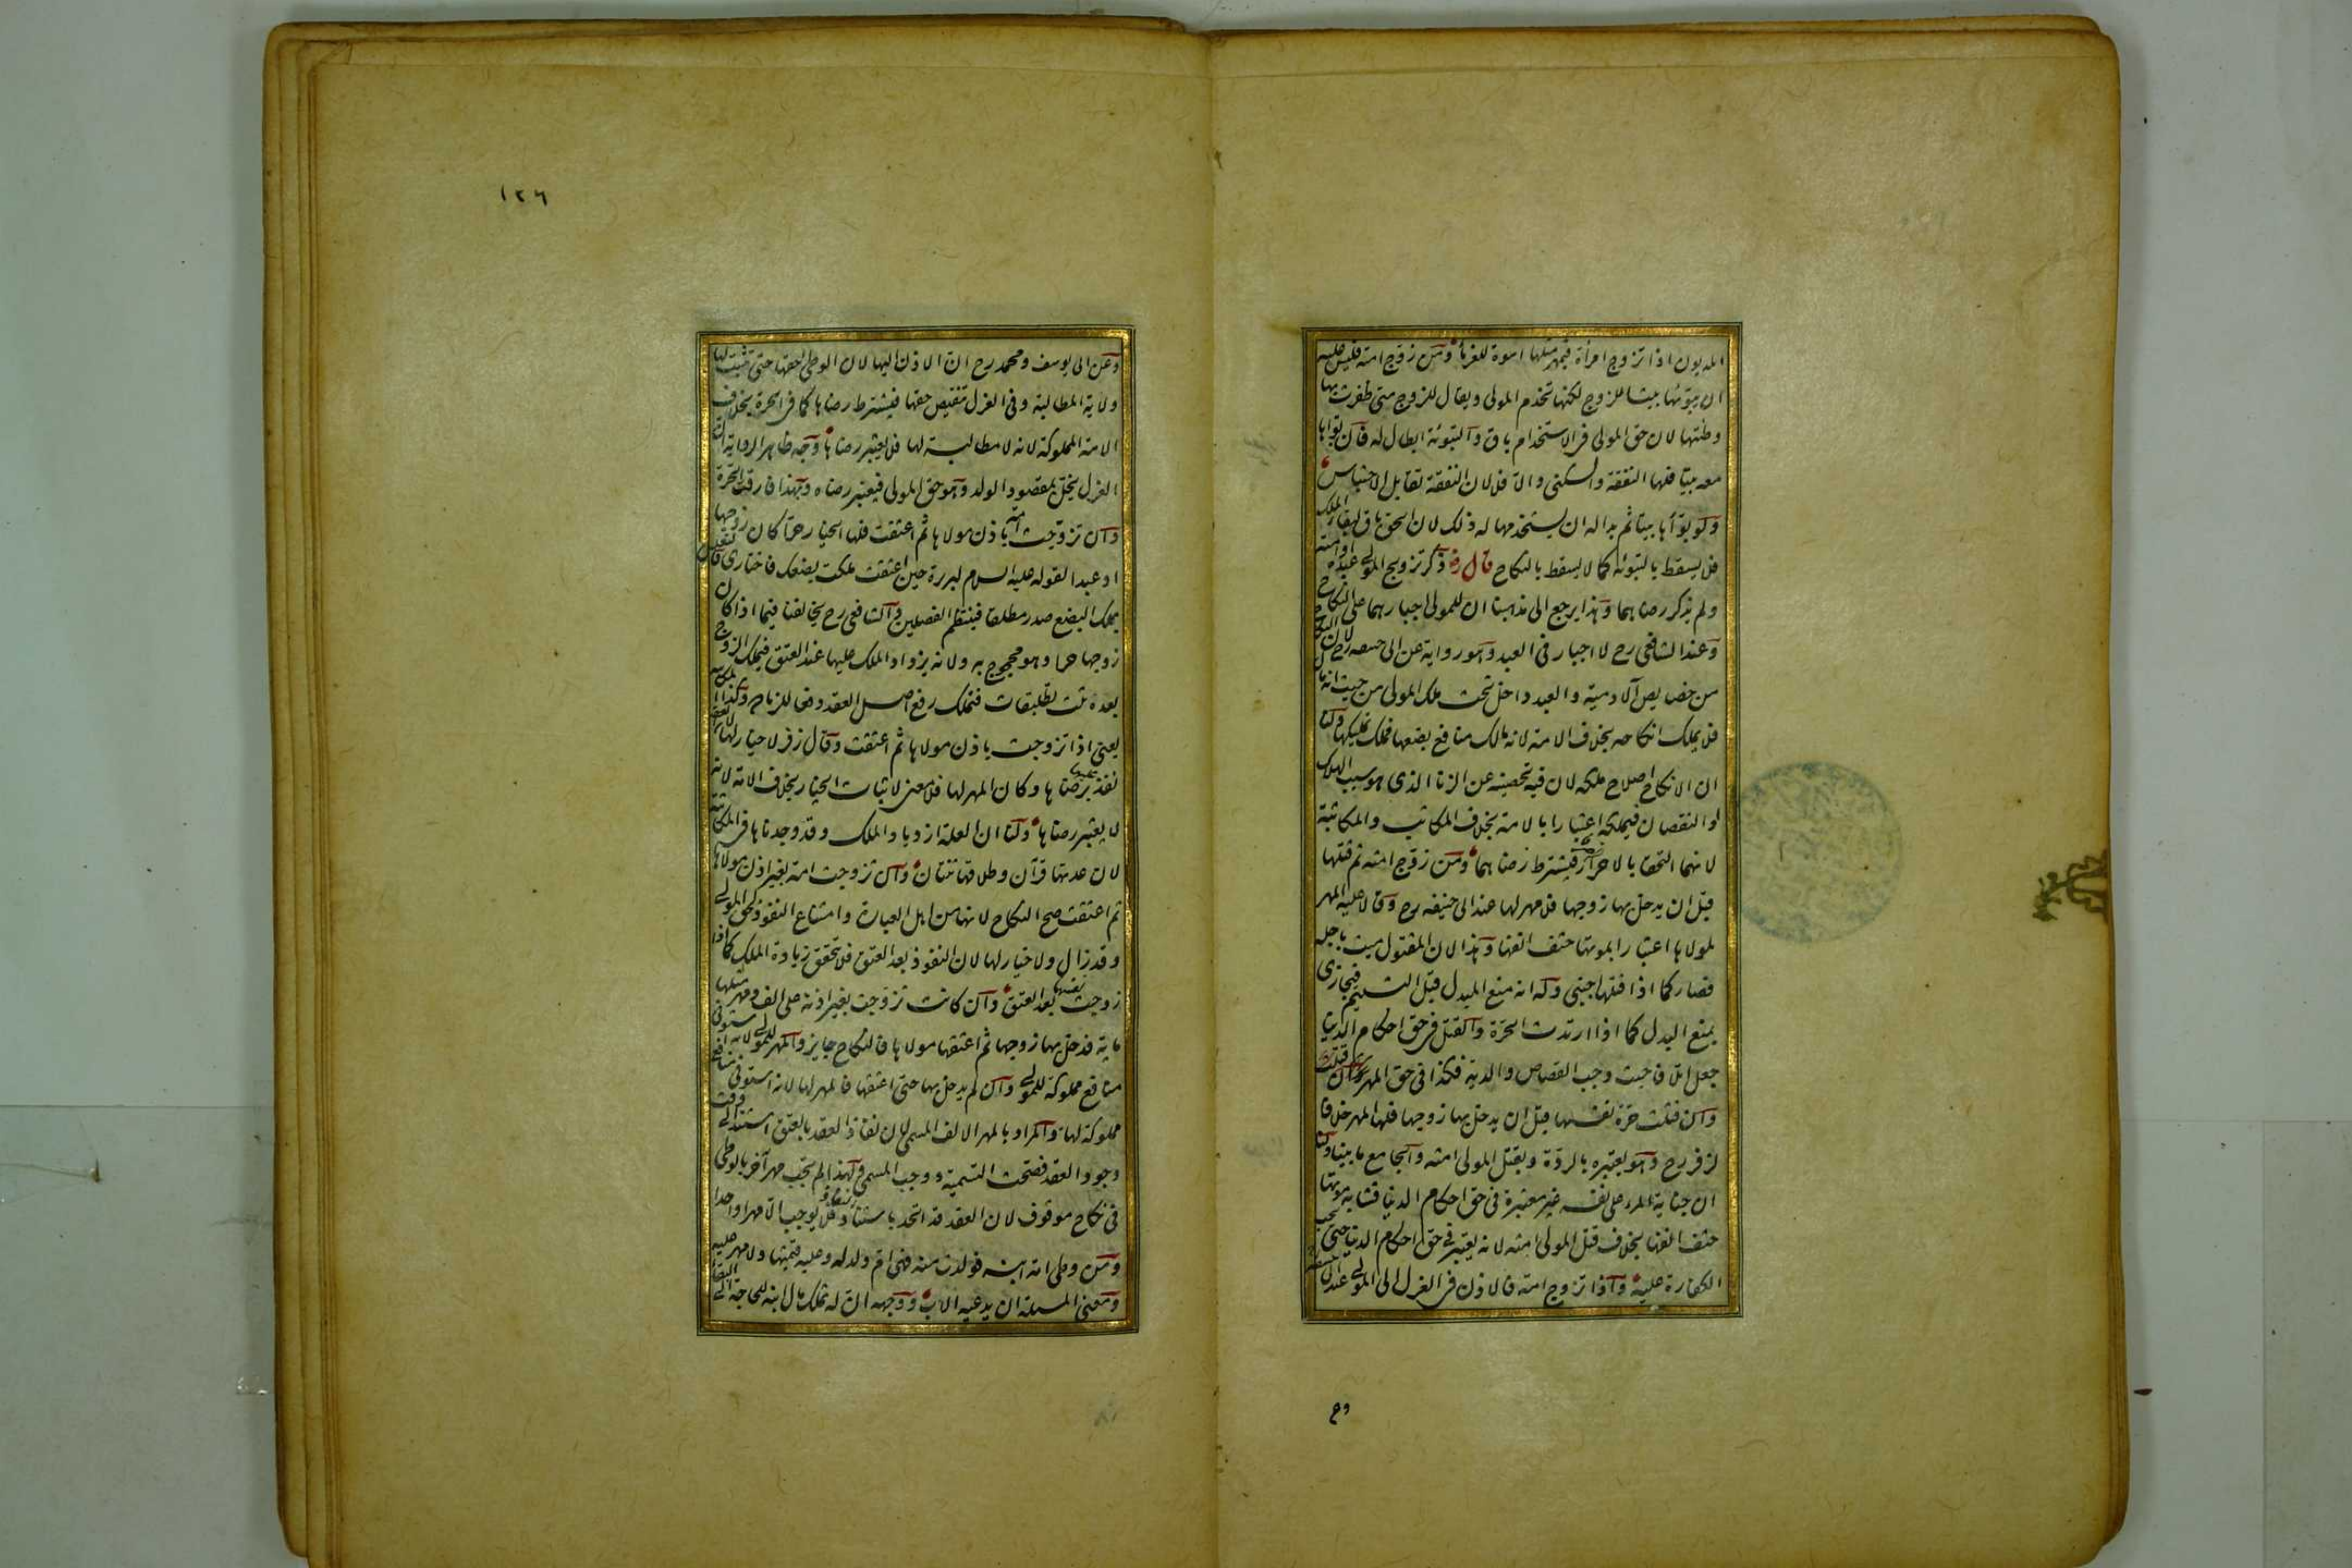 المديون اذا تزوج امرأة فمهر مثلها اسوة للغرماء ومن زوج امته فليس عليه
ان يبوئها بيتا للزوج لكنها تخدم المولى ويقال للزوج متى ظفرت بها
وطئتها لان حق المولى في الاستخدام باق والتبوئة ابطال له فان بوأها
معه بيتا فلها النفقة والسكنى والا فلا لان النفقة تقابل الاحتباس
ولو بوأها بيتا ثم بدا له ان يستخدمها له ذلك لان الحق باق لبقاء الملك
فلا يسقط بالتبوئة كما لا يسقط بالنكاح قال رض ذكر تزويج المولى عبده وامته
ولم يذكر رضاهما وهذا يرجع الى مذهبنا ان للمولى اجبارهما على النكاح
وعند الشافعي رح لا اجبار في العبد وهو رواية عن ابي حنيفه رح لان النكاح
من خصايص الآدمية والعبد داخل تحت ملك المولى من حيث انه مال
فلا يملك انكاحه بخلاف الامة لانه مالك منافع بضعها فملك تمليكها ولنا
ان الانكاح اصلاح ملكه لان فيه تحصينه عن الزنا الذى هو سبب الهلاك
او النقصان فيملكه اعتبارا بالامة بخلاف المكاتب والمكاتبة
لانهما التحقا بالاحرار فيشترط رضاهما ومن زوج امته ثم قتلها
قبل ان يدخل بها زوجها فلا مهر لها عند ابي حنيفه رح وقالا عليه المهر
لمولاها اعتبارا بموتها حتف انفها وهذا لان المقتول ميت باجله
فصار كما اذا قتلها اجنبي وله انه منع المبدل قبل التسليم فيجازى
بمنع البدل كما اذا ارتدت الحرة والقتل في حق احكام الدنيا
جعل اتلافا حيث وجب القصاص والدية فكذا في حق المهر
وان قتلت حرة نفسها قبل ان يدخل بها زوجها فلها المهر خلافا
لزفر رح وهو يعتبره بالردة وبقتل المولى امته والجامع ما بينا ولنا
ان جناية المرء على نفسه غير معتبرة في حق احكام الدنيا فشابه موتها
حتف انفها بخلاف قتل المولى امته لانه يعتبر في حق احكام الدنيا حتى تجب
الكفارة عليه واذا تزوج امة فالاذن في العزل الى المولى عند ابي حنيفه
وع
١٢٦
وعن ابي يوسف ومحمد رح ان الاذن اليها لان الوطى حقها حتى تثبت لها
ولاية المطالبة وفي العزل تنقيص حقها فيشترط رضاها كما في الحرة بخلاف
الامة المملوكة لانه لا مطالبة لها فلا يعتبر رضاها وجه ظاهر الرواية ان
العزل يخل بمقصود الولد وهو حق المولى فيعتبر رضاه وبهذا فارقت الحرة
وان تزوجت امة باذن مولاها ثم اعتقت فلها الخيار حرا كان زوجها
او عبدا لقوله عليه السلام لبريرة حين اعتقت ملكت بضعك فاختارى فالتعليل
بملك البضع صدر مطلقا فينتظم الفصلين والشافعي رح يخالفنا فيما اذا كان
زوجها حرا وهو محجوج به ولانه يزداد الملك عليها عند العتق فيملك الزوج
بعده ثلث تطليقات فتملك رفع اصل العقد دفعا للزيادة وكذا المكاتبة
يعني اذا تزوجت باذن مولاها ثم اعتقت وقال زفر لا خيار لها لان العقد
نفذ عليها برضاها وكان المهر لها فلا معنى لاثبات الخيار بخلاف الامة لانه
لا يعتبر رضاها ولنا ان العلة ازدياد الملك وقد وجدناها في المكاتبة
لان عدتها قرآن وطلاقها ثنتان وان تزوجت امة بغير اذن مولاها
ثم اعتقت صح النكاح لانها من اهل العبارة وامتناع النفوذ لحق المولى
وقد زال ولا خيار لها لان النفوذ بعد العتق فلا تتحقق زيادة الملك كما اذا
زوجت نفسها بعد العتق وان كانت تزوجت بغير اذنه على الف ومهر مثلها
ماية فدخل بها زوجها ثم اعتقها مولاها فالنكاح جايز والمهر للمولى لانه استوفى
منافع مملوكة للمولى وان لم يدخل بها حتى اعتقها فالمهر لها لانه استوفى منافع
مملوكة لها والمراد بالمهر الالف المسمى لان نفاذ العقد بالعتق استند الى وقت
وجود العقد فصحت التسمية ووجب المسمى ولهذا لم يجب مهر آخر بالوطى
في نكاح موقوف لان العقد قد اتحد باستناد النفاذ فلا يوجب الا مهرا واحدا
ومن وطى امة ابنه فولدت منه فهي ام ولد له وعليه قيمتها ولا مهر عليه
ومعنى المسئلة ان يدعيه الاب ووجهه ان له تملك مال ابنه للحاجة الى البقاء